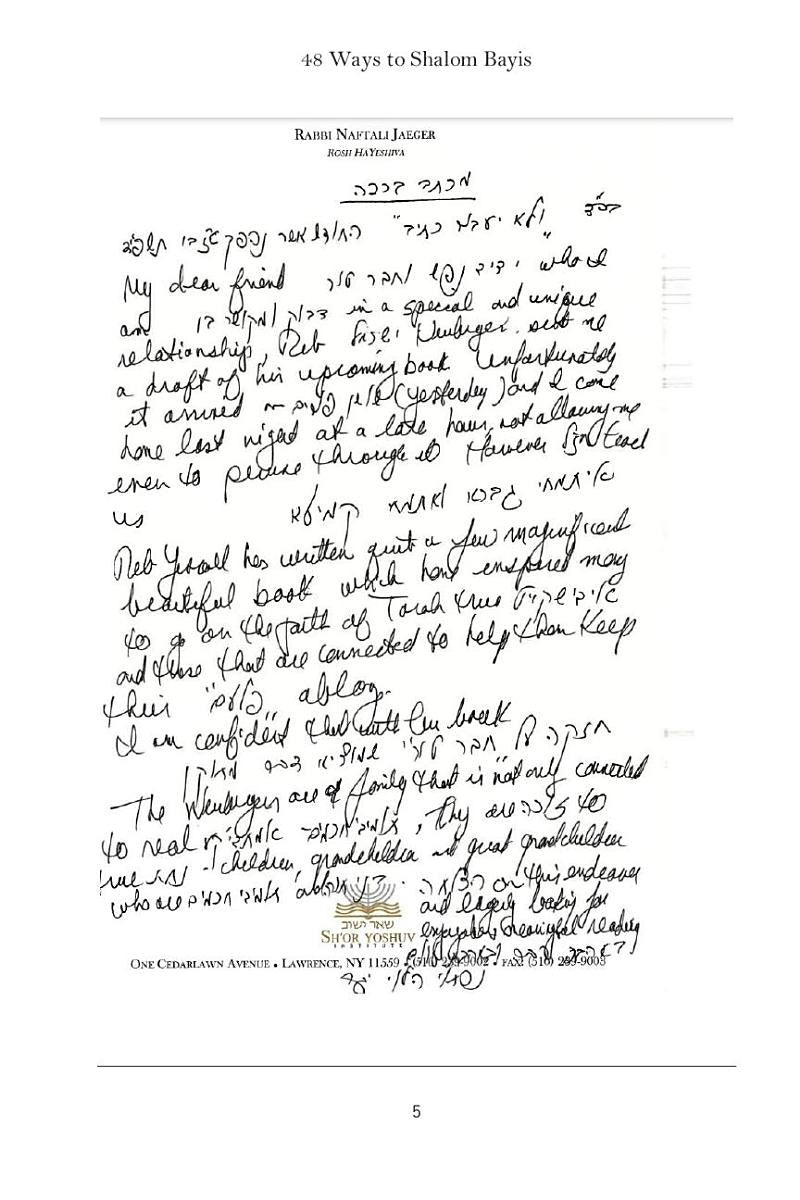 48 Ways to Shalom Bayis
RABBI NAFTALI JAEGER
ROSH HAYESHIVA
מכתב ברכה
בס"ד
"ולא יעבור"
My dear friend ידיד נפש וחבר טוב who I
am דבוק ומקושר בו in a special and unique
relationship, Reb ישראל Neuberger, sent me
a draft of his upcoming book. Unfortunately
it arrived (yesterday) and I came
home last night at a late hour, not allowing me
even to peruse through it. However חז"ל teach
us איתמחי גברא ואתמחי קמיעא
Reb Yisroel has written quite a few magnificent
beautiful book which have inspired many
to go on the path of Torah true אידישקייט
and those that are connected to help them keep
their ablaze.
I am confident that with this book
חזקה על חבר שמוציא דבר
The Neubergers are a family that is not only connected
to real אמת'ע תלמידי חכמים, they are זוכה to
true נחת - children, grandchildren and great grandchildren
who are תלמידי חכמים הצלחה on this endeavor
and eagerly looking for
enjoyable, meaningful reading
שאר ישוב
SH'OR YOSHUV
INSTITUTE
ONE CEDARLAWN AVENUE • LAWRENCE, NY 11559 • (516) 239-9002 • FAX: (516) 239-9003
נפתלי הלוי יגר
5